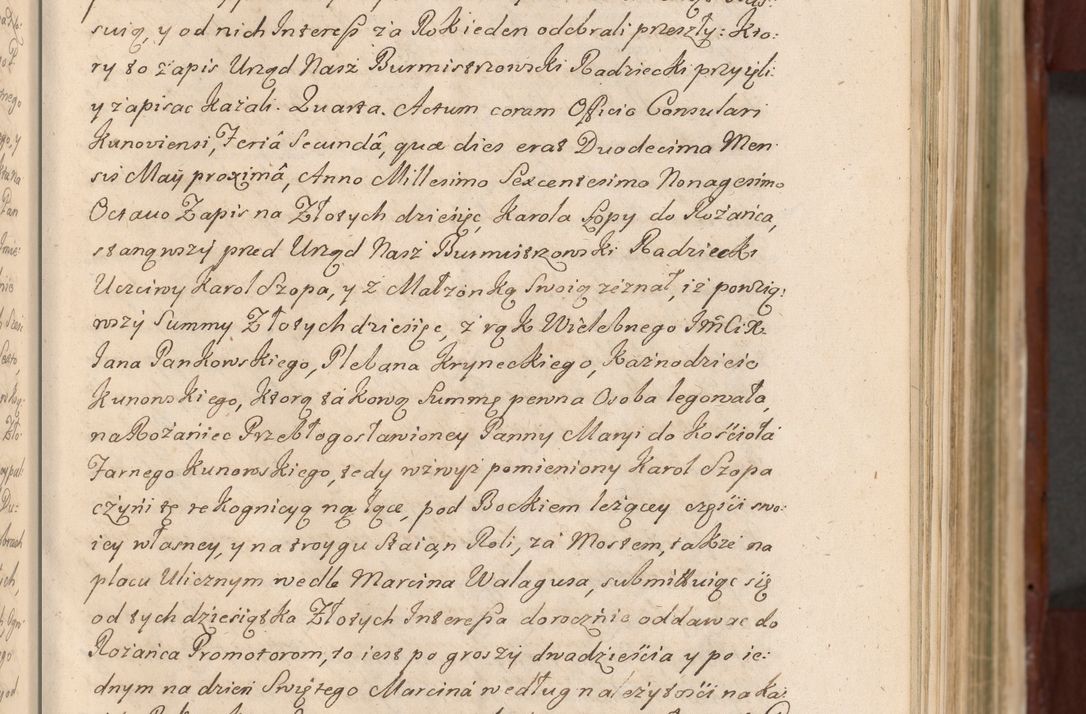 swią, y od nich Interess za Rok ieden odebrali przeszły: Kto:
ry to zapis Urząd Nasz Burmistrzowski Radziecki przyięli
y zapisac kazali. Quarta. Actum coram Officio Consulari
Kunoviensi, Feriâ Secundâ, quæ dies erat Duodecima Men:
sis Maÿ proximâ, Anno Millesimo Sexcentesimo Nonagesimo
Octauo Zapis na Złotych dziesięc, Karola Szopy do Rożańca,
stanąwszy przed Urząd Nasz Burmistrzowski Radziecki
Uczciwy Karol Szopa, y z Małżonką Swoią zeznał, iż powzią:
wszy Summy Złotych dziesięc, z rąk Wielebnego
Iana Pankowskiego, Plebana Kryneckiego, Kaznodzieie
Kunowskiego, ktorą tákową Summę pewna Osoba legowała,
na Rożaniec Przebłogosławioney Panny Maryi do Kościoła
Farnego Kunowskiego, tedy wzwyż pomieniony Karol Szopa
czyni tę rekognicyą ná łące, pod Bockiem leżącey częśći swo:
iey własney, y na troygu Staian Roli, zá Mostem, także na
placu Ulicznym wedle Marcina Walagusa, submittuiąc się
od tych dziesiątka Złotych Interessa dorocznie oddawac do
Rożańca Promotorom, to iest po groszy dwadzieścia y po ie:
dnym na dzień Swiętego Marciná według należytośći na ka: